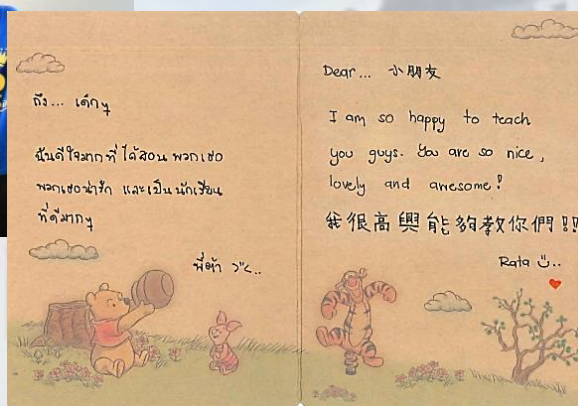 ถึง... เด็กๆ
ฉันดีใจมากที่ได้สอนพวกเธอ
พวกเธอน่ารัก และเป็นนักเรียน
ที่ดีมากๆ
พี่ต้า
Dear... 小朋友
I am so happy to teach
you guys. You are so nice,
lovely and awesome!
我很高興能夠教你們!!
Rata